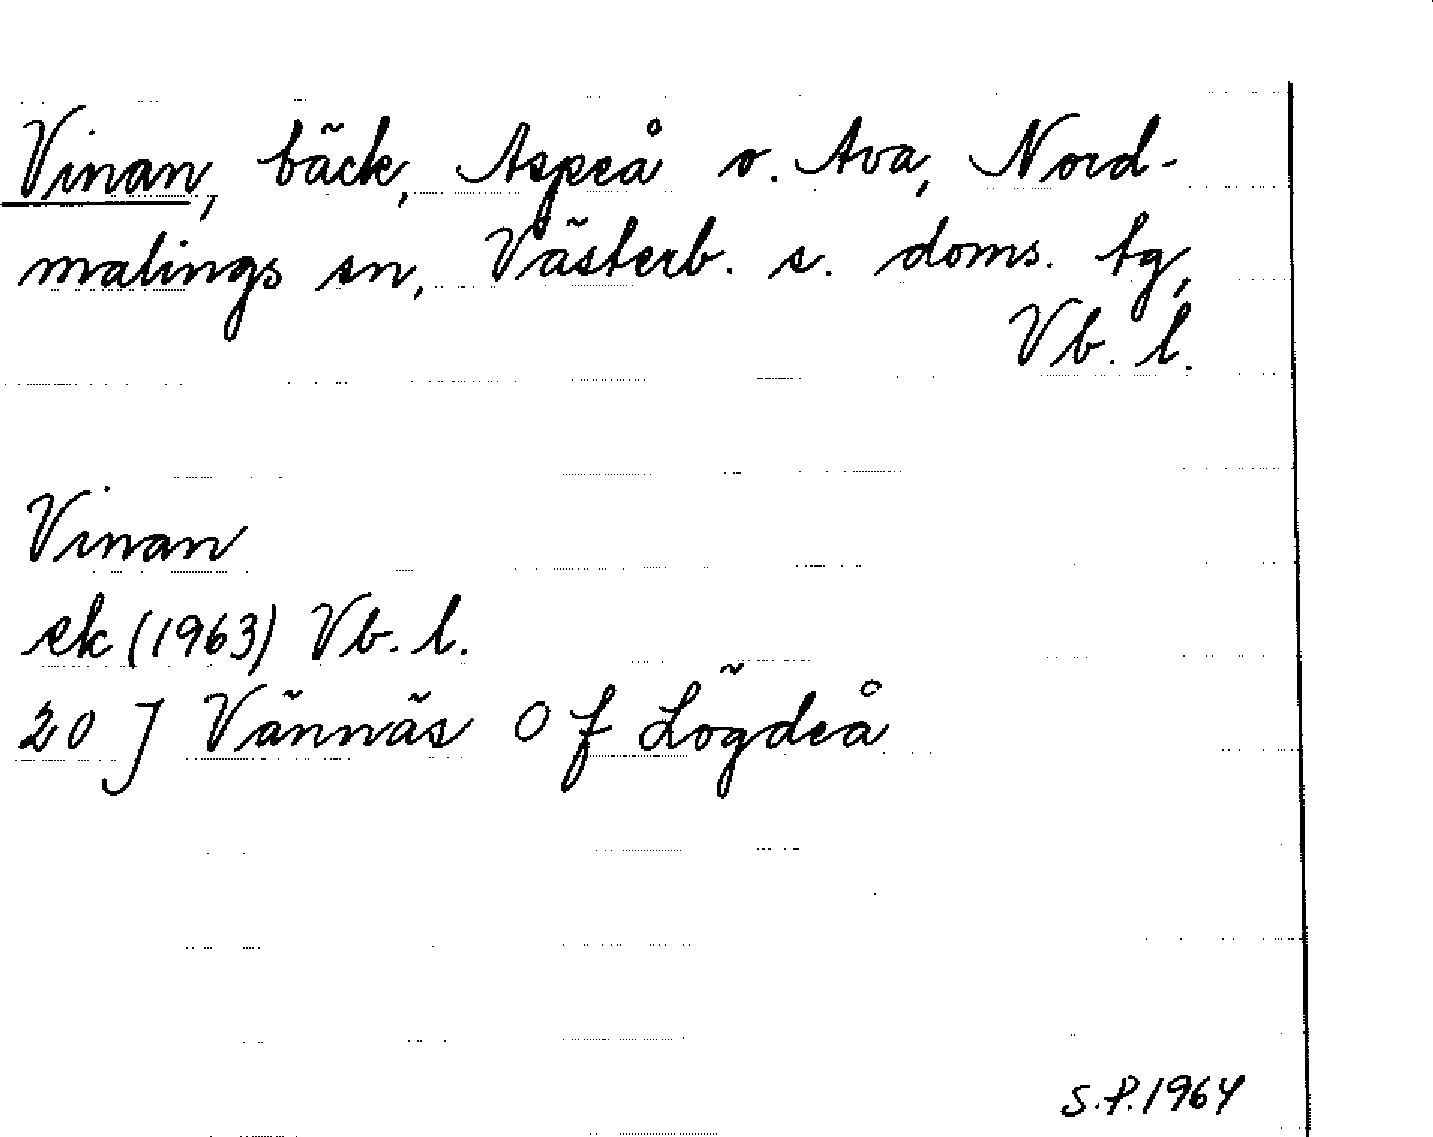 Vinan, bäck, Aspeå o. Ava, Nord-
malings sn, Västerb. s. doms. tg,
Vb. l.
Vinan
ek (1963) Vb. l.
20 J Vännäs 0 f Lögdeå
S.P. 1964